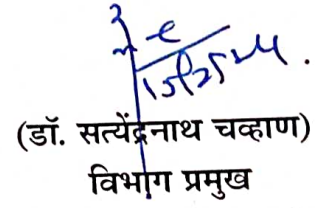 (डॉ. सत्येंद्रनाथ चव्हाण)
विभाग प्रमुख